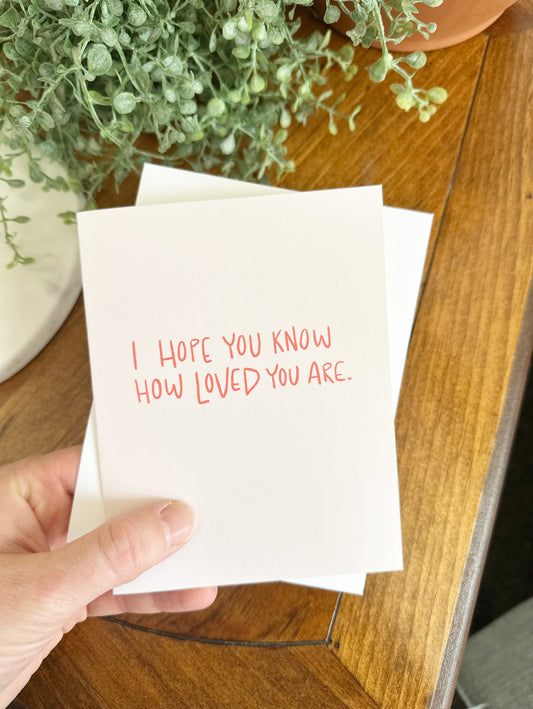 I HOPE YOU KNOW
HOW LOVED YOU ARE.